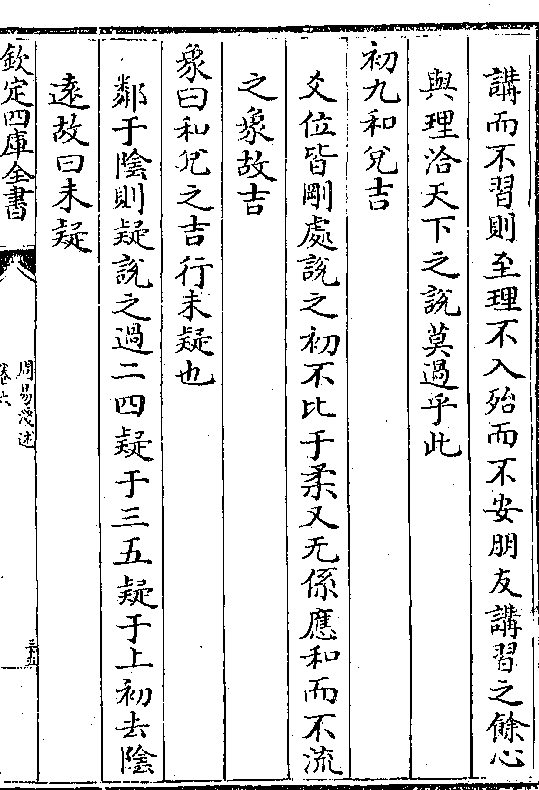 講而不習則至理不入殆而不安朋友講習之餘心
與理洽天下之說莫過乎此
初九和兌吉
爻位皆剛處說之初不比于柔又无係應和而不流
之象故吉
象曰和兌之吉行未疑也
鄰于陰則疑說之過二四疑于三五疑于上初去陰
遠故曰未疑
欽定四庫全書
周易淺述
卷六
三十五